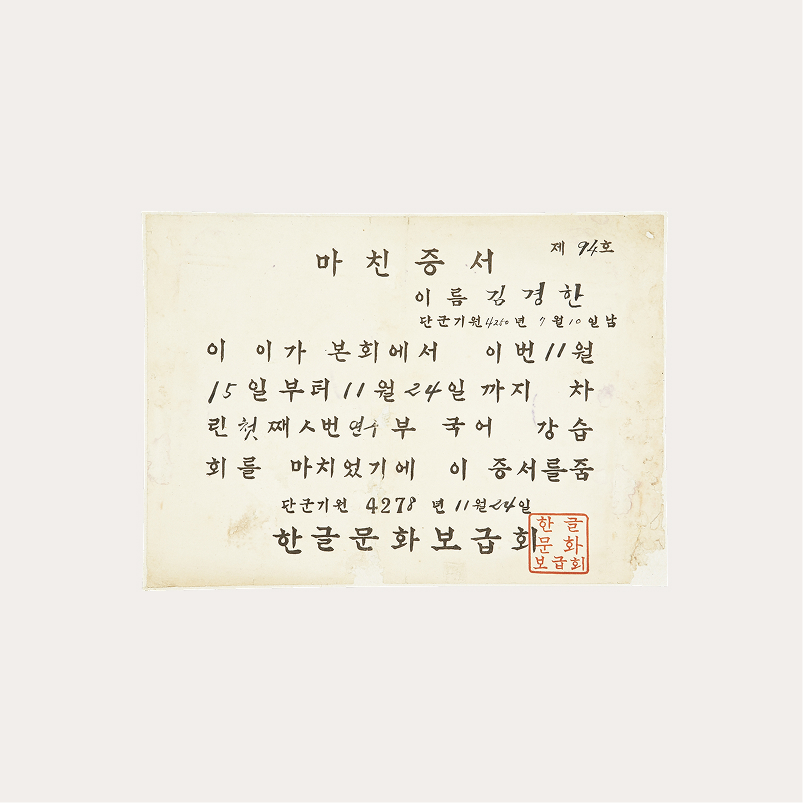 제 94호
마친증서
이름 김경한
단군기원 4260년 7월 10일 남
이 이가 본회에서 이번 11월
15일 부터 11월 24일 까지 차
린 첫째 번 연수부 국어 강습
회를 마치었기에 이 증서를 줌
단군기원 4278 년 11월 24일
한글문화보급회
한글
문화
보급회